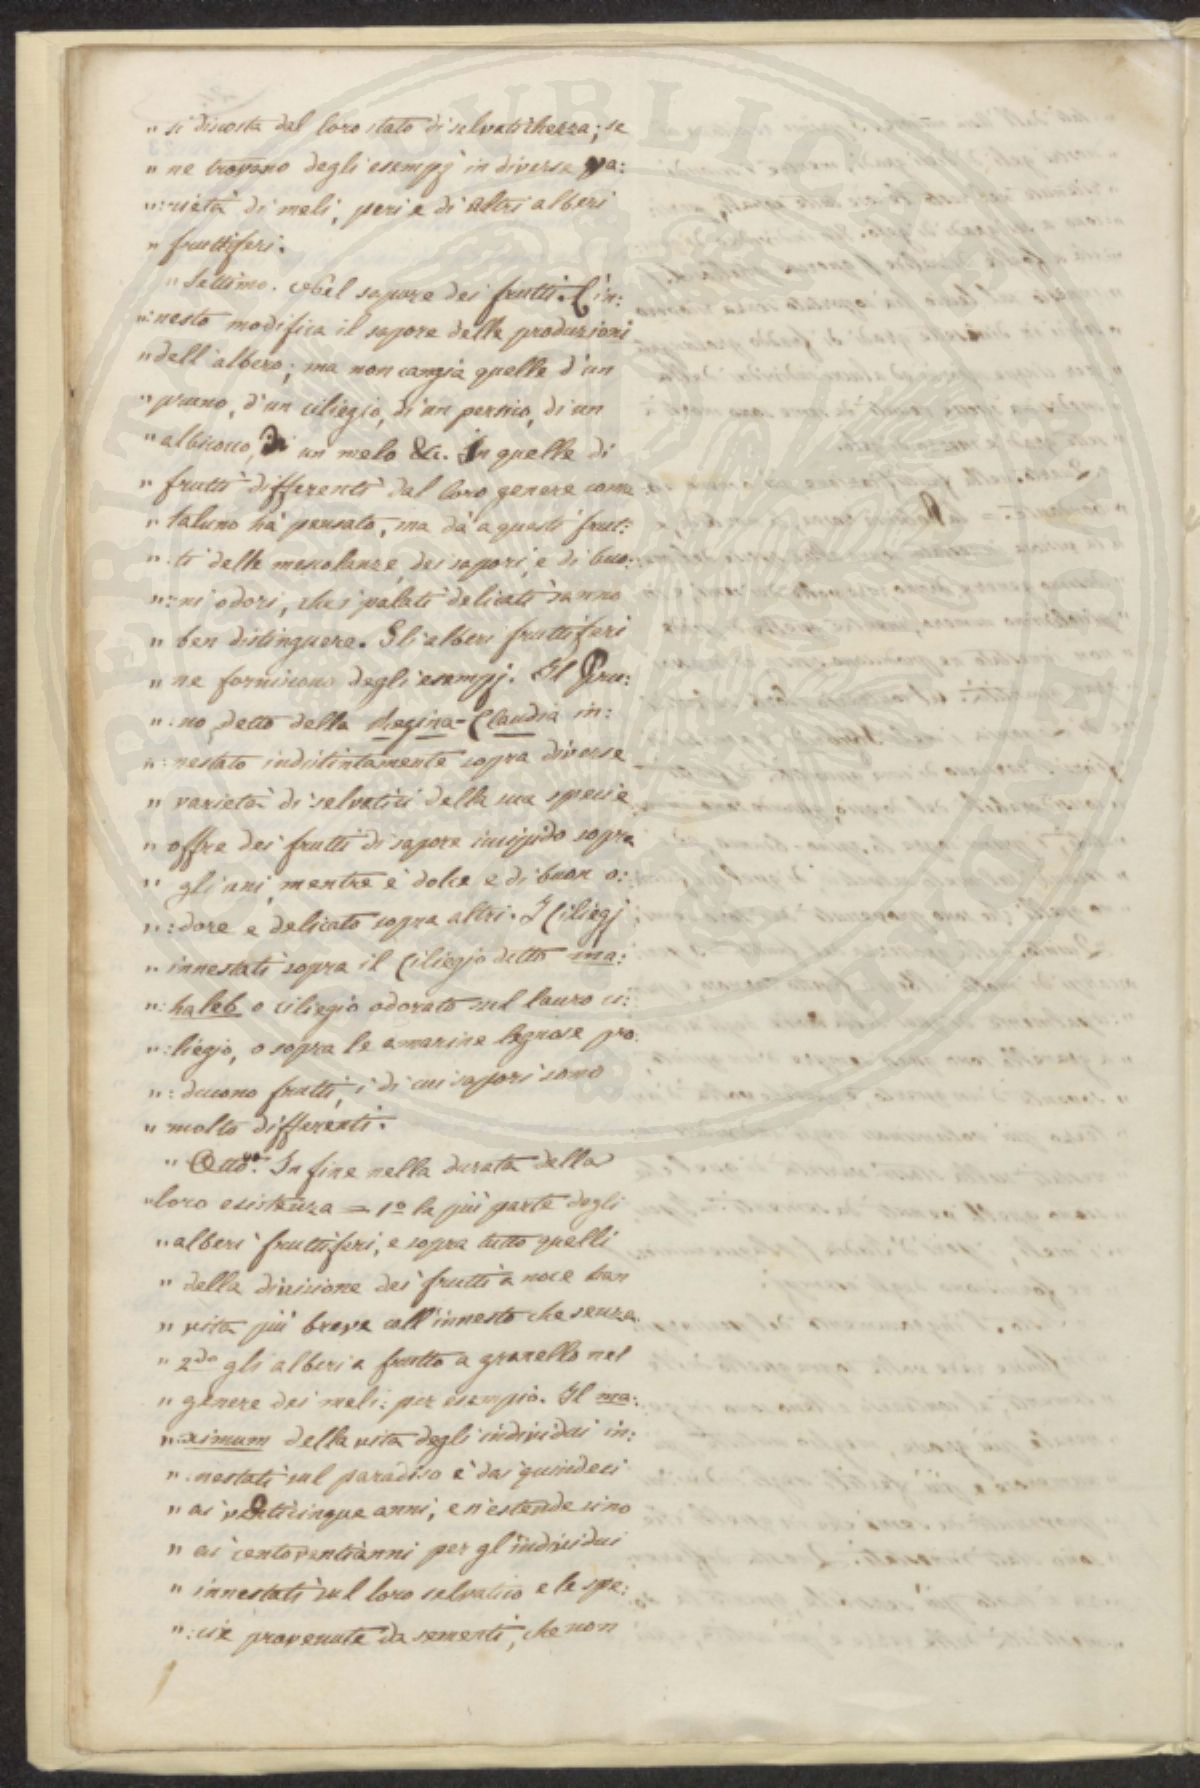 " si discosta dal loro stato di selvatichezza; se
" ne trovano degli esempj in diverse va:
":rietà di meli, peri e di altri alberi
" fruttiferi.
" Settimo. Nel sapore dei frutti. L'in:
":nesto modifica il sapore delle produzioni
" dell'albero; ma non cangia quelle d'un
" pruno, d'un ciliegio, di un persico, di un
" albicocco, di un melo &c. In quelle di
" frutti differenti dal loro genere come
" taluno hà pensato, ma dà a questi frut:
":ti delle mescolanze dei sapori, e di buo:
":ni odori, che i palati delicati sanno
" ben distinguere. Gli alberi fruttiferi
" ne forniscono degli esempj. Il Pru:
":no detto della Regina-Claudia in:
":nestato indistintamente sopra diverse
" varietà di selvatici della sua specie
" offre dei frutti di sapore insipido sopra
" gli uni, mentre è dolce e di buon o:
":dore e delicato sopra altri. I Ciliegj
" innestati sopra il Ciliegio detto ma:
":haleb o ciliegio odorato sul lauro ci:
":liegio, o sopra le amarine legnose pro:
":ducono frutti, i di cui sapori sono
" molto differenti.
" Ottvo. In fine nella durata della
" loro esistenza = 1º la più parte degli
" alberi fruttiferi, e sopra tutto quelli
" della divisione dei frutti a noce han
" vita più breve coll'innesto che senza.
" 2do gli alberi a frutto a granello nel
" genere dei meli: per esempio. Il ma:
":ximum della vita degli individui in:
":nestati sul paradiso è dai quindeci
" ai venticinque anni, e s'estende sino
" ai centoventi anni per gl'individui
" innestati sul loro selvatico e le spe:
":cie provenute da sementi, che non